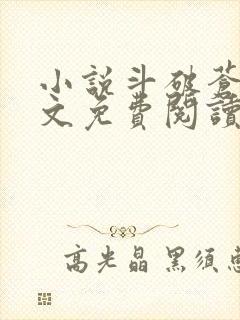 小說斗破蒼
文免費閱讀
高光晶黑須